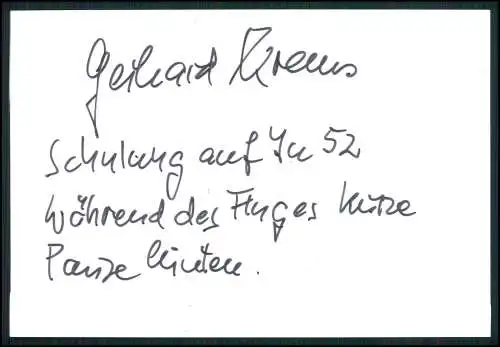 Gerhard Krems
Schulung auf Ju 52
während des Fluges kurze
Pause hinten.